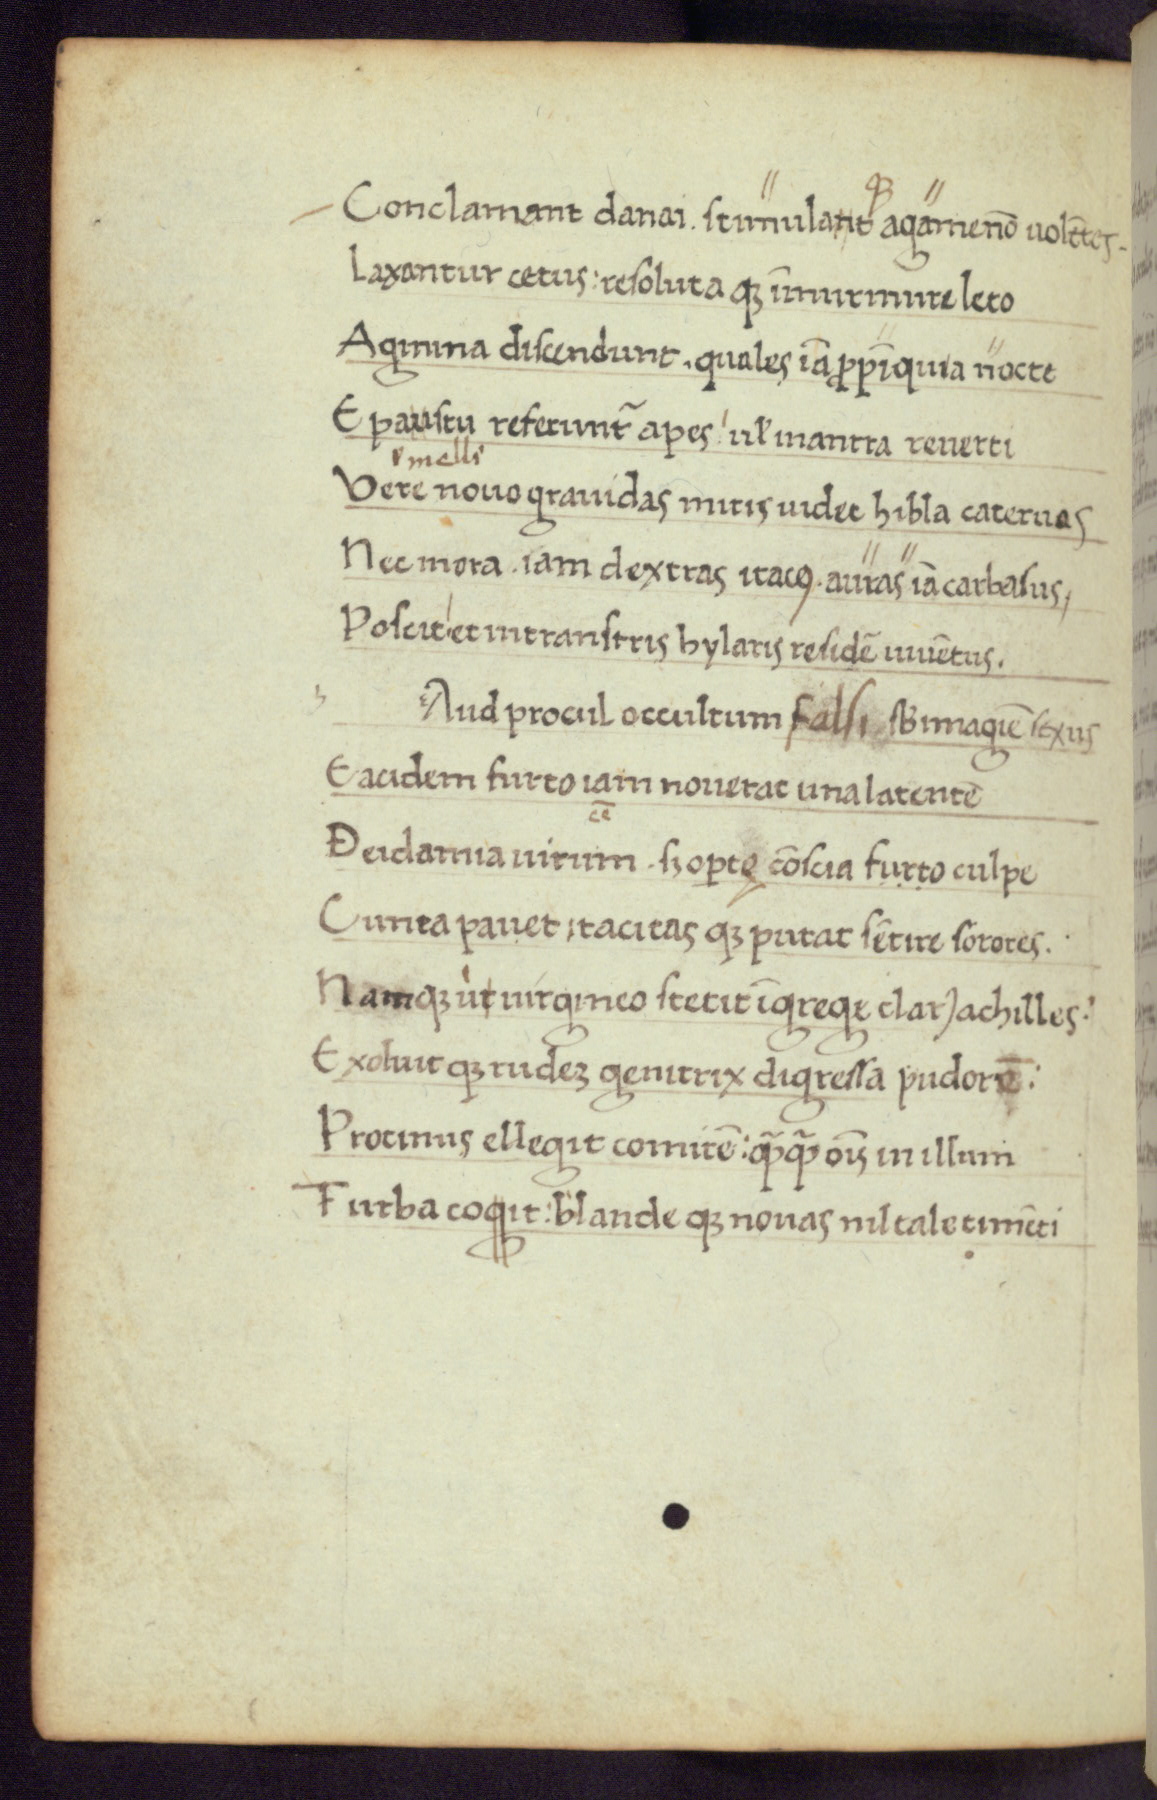 Conclamant danai . stimulantqꝫ agamenō uolētes
Laxantur cetus : resoluta qꝫ īmurmure leto
Agmina discendunt . quales iā ꝓpīquia nocte
E paustu referunt̃ apes ul' mantra reuerti
ł melli
Vere nouo grauidas mitis uidet hibla cateruas
Nec mora . iam dextras itacꝯ . auras iā carbasus
Poscit et intranstris hylaris residē iuuētus .
Aud procul occultum falsi sb imagiē sexus
Eacidem furto iam nouerat una latentē
cē
Deidamia uirum . sꝫ opte cōscia furto culpe
Cunta pauet tacitas qꝫ putat sētire sorores .
Namqꝫ ut uirgineo stetit īgrege clarꝰ achilles :
Exoluit qꝫ rudeꝫ genitrix digressa pudorē :
Protinus ellegit comitē : q̄q̄ ōis in illum
Turba cogit : blande qꝫ nouas nil tale timēti